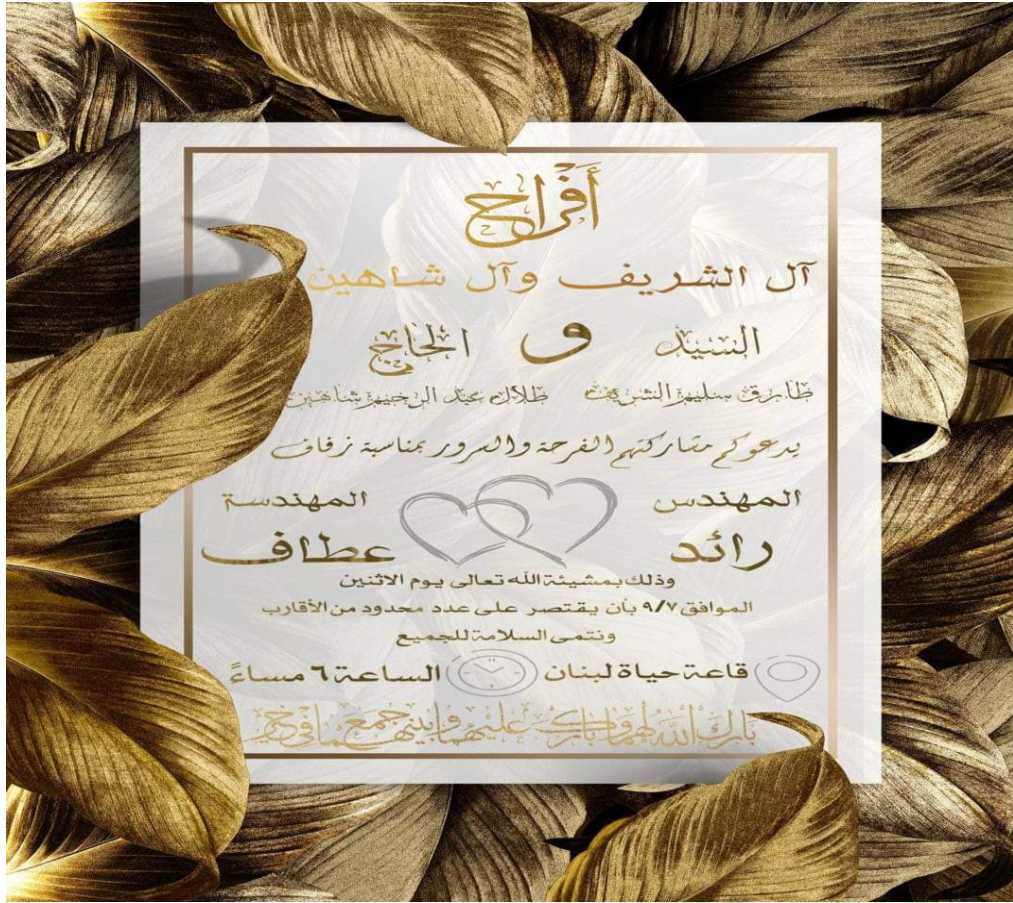 أَفْرَاح
آل الشريف وآل شاهين
السيد و الحاج
طارق سليم الشريف طلال عبد الرحيم شاهين
يدعوكم مشاركتهم الفرحة والسرور بمناسبة زفاف
المهندس المهندسة
رائد عطاف
وذلك بمشيئة الله تعالى يوم الاثنين
الموافق ٩/٧ بأن يقتصر على عدد محدود من الأقارب
ونتمى السلامة للجميع
قاعة حياة لبنان الساعة ٦ مساءً
بارك الله لهما وبارك عليهما وجمع بينهما في خير